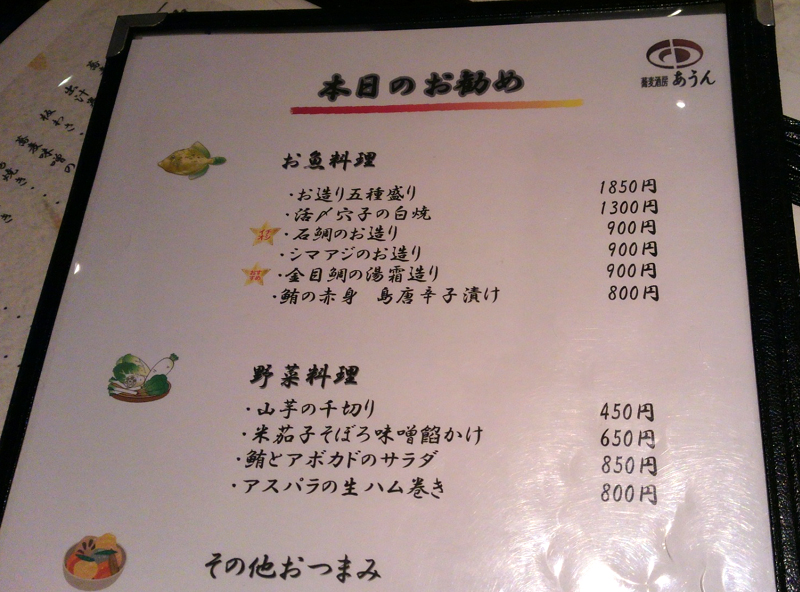 本日のお勧め
蕎麦酒房 あうん
お魚料理
・お造り五種盛り 1850円
・活〆穴子の白焼 1300円
・石鯛のお造り 900円
・シマアジのお造り 900円
・金目鯛の湯霜造り 900円
・鮪の赤身 島唐辛子漬け 800円
野菜料理
・山芋の千切り 450円
・米茄子そぼろ味噌餡かけ 650円
・鮪とアボカドのサラダ 850円
・アスパラの生ハム巻き 800円
その他おつまみ